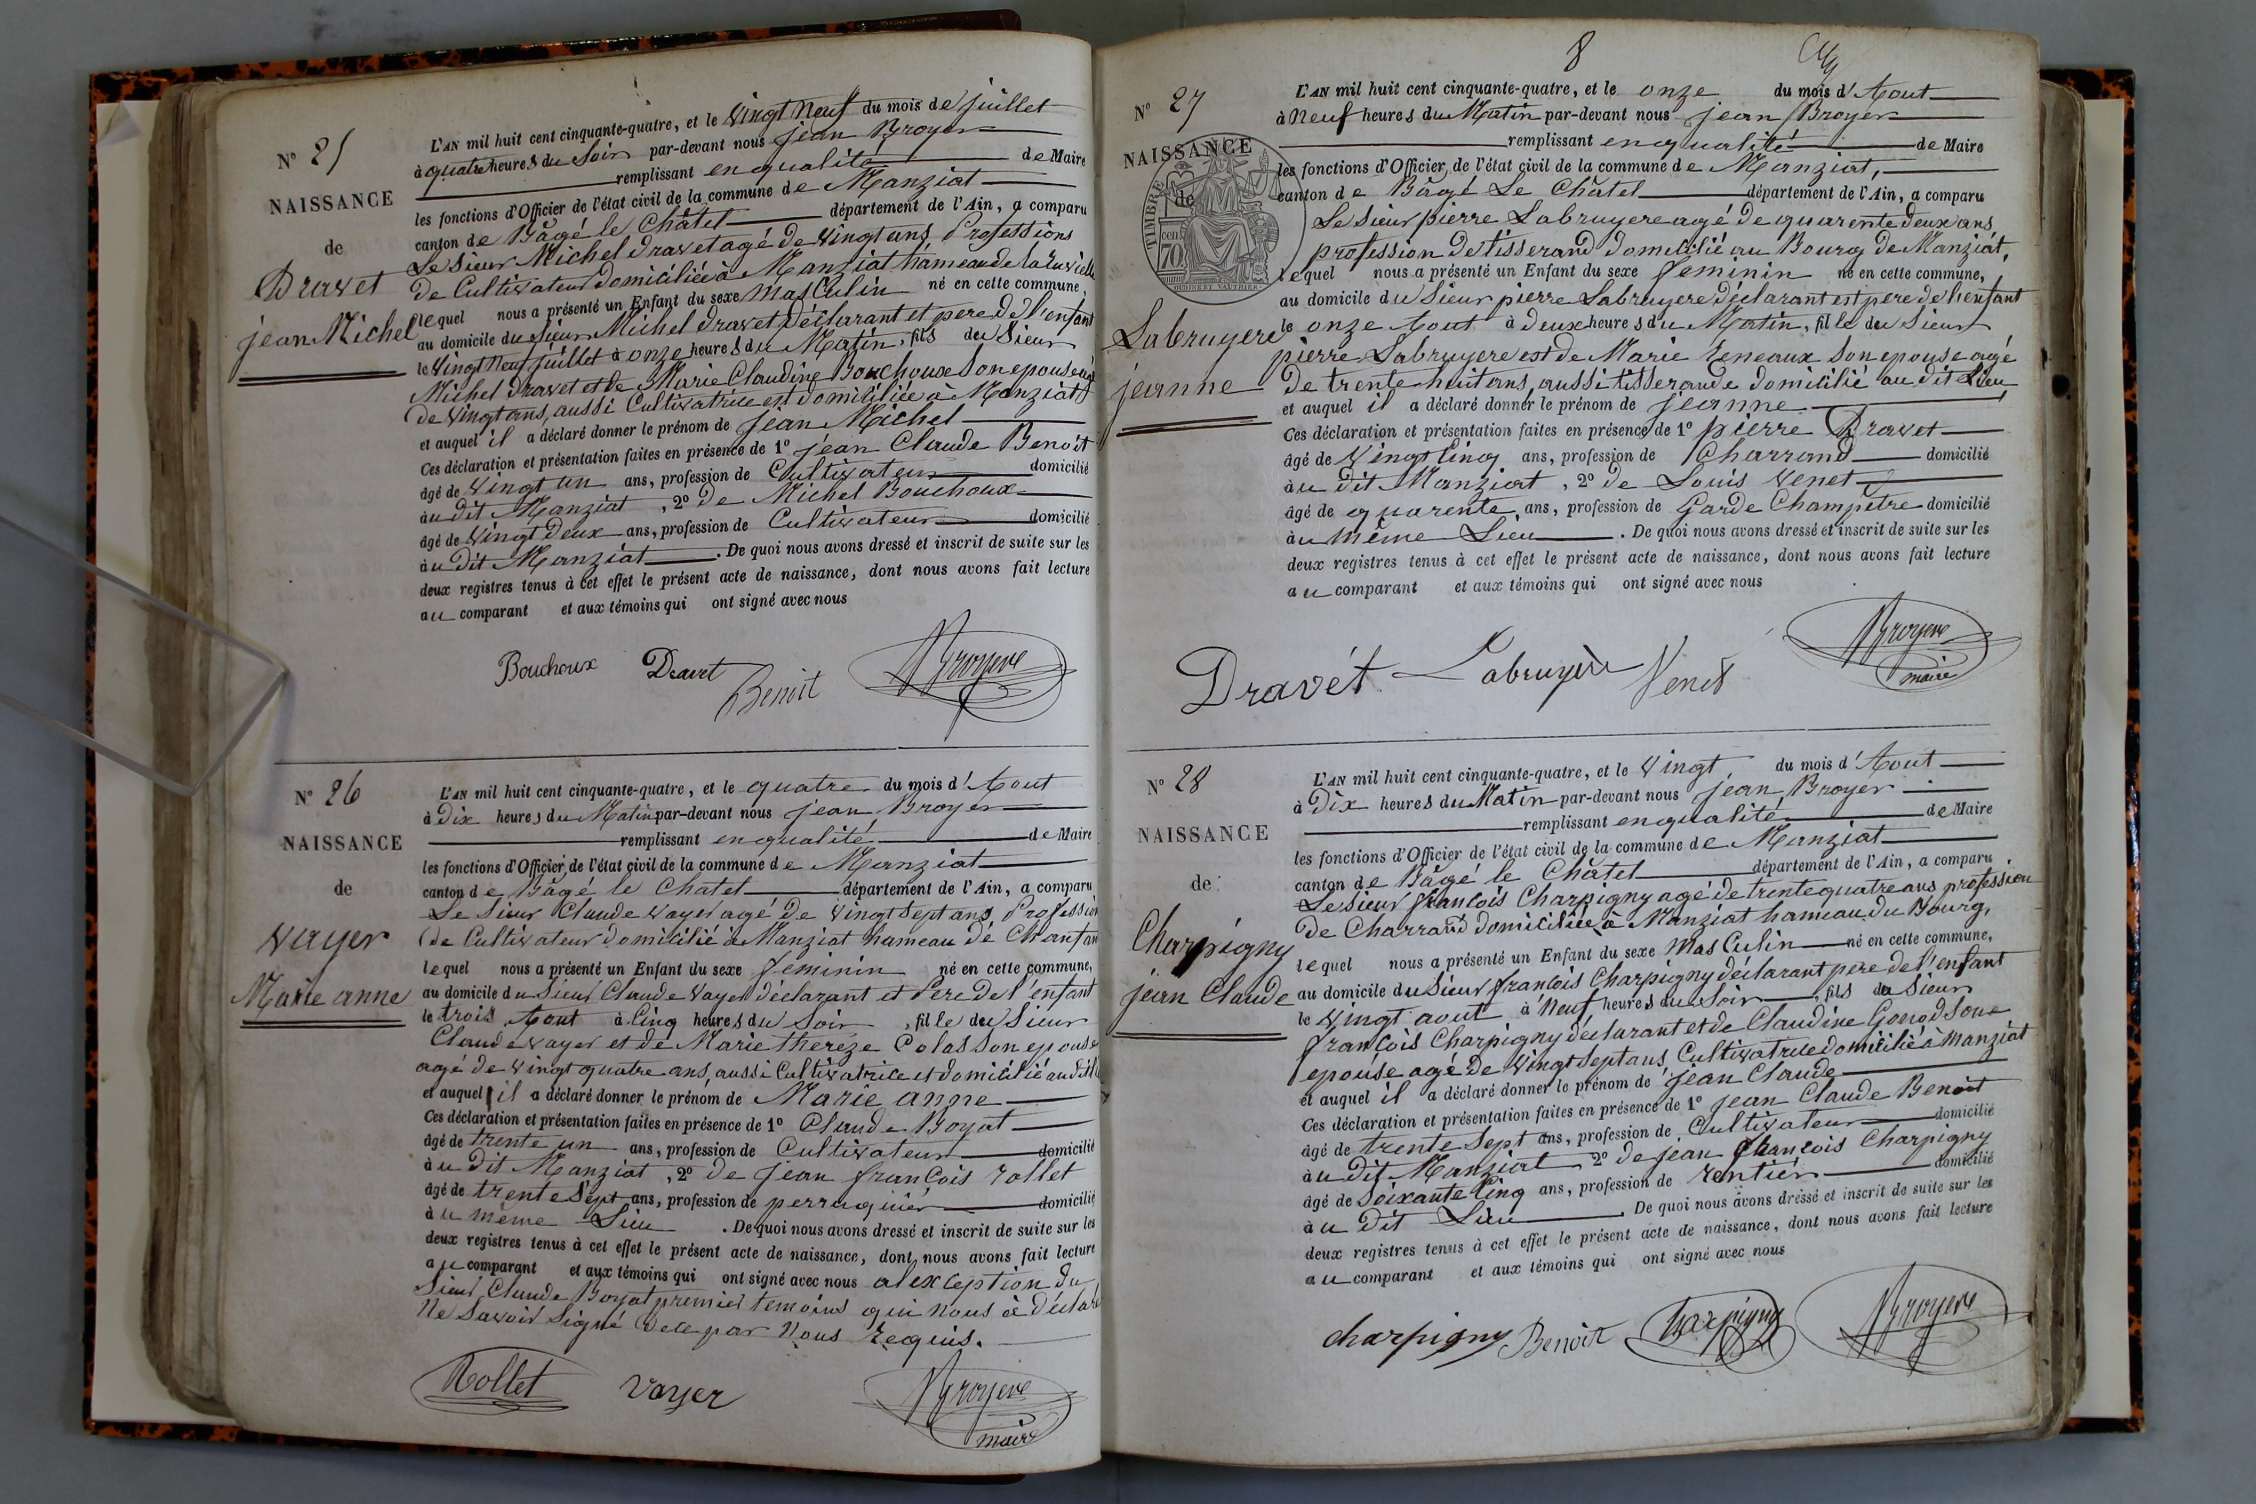 N° 25
NAISSANCE
de
Dravet
jean Michel
L'AN mil huit cent cinquante-quatre, et le Vingt Neuf du mois de juillet
à quatre heures du Soir par-devant nous jean Broyer
remplissant en qualité de Maire
les fonctions d'Officier de l'état civil de la commune de Manziat
canton de Bâgé le Châtel département de l'Ain, a comparu
Le Sieur Michel dravet agé de Vingt ans, Professions
de Cultivateur domiciliée à Manziat hameau de
lequel nous a présenté un Enfant du sexe Masculin né en cette commune,
au domicile du sieur Michel dravet déclarant et pere de l'enfant
le Vingt Neuf juillet à onze heures du Matin, fils deu Sieur
Michel dravet et de Marie Claudine Bouchoux Son epouse agé
de vingt ans, aussi Cultivatrice est domiciliée à Manziat
et auquel il a déclaré donner le prénom de jean Michel
Ces déclaration et présentation faites en présence de 1° jean Claude Benoit
âgé de Vingt un ans, profession de Cultivateur domicilié
àu dit Manziat, 2° de Michel Bouchoux
âgé de Vingt Deux ans, profession de Cultivateur domicilié
àu dit Manziat. De quoi nous avons dressé et inscrit de suite sur les
deux registres tenus à cet effet le présent acte de naissance, dont nous avons fait lecture
au comparant et aux témoins qui ont signé avec nous
Bouchoux Dravet Benoit Broyere
N° 26
NAISSANCE
de
Vayer
Marie anne
L'AN mil huit cent cinquante-quatre, et le quatre du mois d'Aout
à Dix heures du Matin par-devant nous jean Broyer
remplissant en qualité de Maire
les fonctions d'Officier de l'état civil de la commune de Manziat
canton de Bâgé le Chatel département de l'Ain, a comparu
Le Sieur Claude Vayer agé de Vingt Sept ans, Profession
de Cultivateur domicilié à Manziat hameau de Chanfan
lequel nous a présenté un Enfant du sexe feminin né en cette commune,
au domicile du Sieur Claude Vayer déclarant et Pere de l'enfant
le trois Aout à Cinq heures du Soir, fille deu Sieur
Claude Vayer et de Marie thereze Colas Son epouse
agé de Vingt quatre ans, aussi Cultivatrice et domicilié au dit
et auquel il a déclaré donner le prénom de Marie anne
Ces déclaration et présentation faites en présence de 1° Claude Boyat
âgé de trente un ans, profession de Cultivateur domicilié
àu dit Manziat, 2° de jean francois rollet
âgé de trente Sept ans, profession de perruquier domicilié
àu même Lieu. De quoi nous avons dressé et inscrit de suite sur les
deux registres tenus à cet effet le présent acte de naissance, dont nous avons fait lecture
au comparant et aux témoins qui ont signé avec nous a l'exception du
Sieur Claude Boyat premier temoins qui nous à déclaré
Ne Savoir Signé de ce par Nous Requis.
Rollet vayer Broyere
maire
8
N° 27
NAISSANCE
de
TIMBRE
70
Labruyere
jeanne
L'AN mil huit cent cinquante-quatre, et le onze du mois d'Aout
à Neuf heures du Matin par-devant nous jean Broyer
remplissant en qualité de Maire
les fonctions d'Officier de l'état civil de la commune de Manziat,
canton de Bâgé Le Châtel département de l'Ain, a comparu
Le Sieur pierre Labruyere agé de quarente deux ans,
profession de tisserand domicilié au Bourg de Manziat,
lequel nous a présenté un Enfant du sexe feminin né en cette commune,
au domicile du Sieur pierre Labruyere déclarant est pere de l'enfant
le onze Aout à deux heures du Matin, fille deu Sieur
pierre Labruyere est de Marie feneaux Son epouse agé
de trente huit ans, aussi tisserande domicilié au dit Lieu
et auquel il a déclaré donner le prénom de jeanne
Ces déclaration et présentation faites en présence de 1° pierre Dravet
âgé de Vingt Cinq ans, profession de Charrand domicilié
àu dit Manziat, 2° de Louis Venet
âgé de quarente ans, profession de Garde Champêtre domicilié
àu même Lieu. De quoi nous avons dressé et inscrit de suite sur les
deux registres tenus à cet effet le présent acte de naissance, dont nous avons fait lecture
au comparant et aux témoins qui ont signé avec nous
Dravét Labruyère Venet Broyere
maire
N° 28
NAISSANCE
de
Charpigny
jean Claude
L'AN mil huit cent cinquante-quatre, et le Vingt du mois d'Aout
à Dix heures du Matin par-devant nous jean Broyer
remplissant en qualité de Maire
les fonctions d'Officier de l'état civil de la commune de Manziat
canton de Bâgé le Châtel département de l'Ain, a comparu
Le Sieur francois Charpigny agé de trente quatre ans profession
de Charrand domiciliée à Manziat hameau du Bourg,
lequel nous a présenté un Enfant du sexe Masculin né en cette commune,
au domicile du Sieur francois Charpigny déclarant pere de l'enfant
le Vingt aout à Neuf heures du Soir, fils du Sieur
francois Charpigny déclarant et de Claudine Gonod Son
epouse agé de Vingt Sept ans, Cultivatrice domicilié à Manziat
et auquel il a déclaré donner le prénom de jean Claude
Ces déclaration et présentation faites en présence de 1° jean Claude Benoit
âgé de trente Sept ans, profession de Cultivateur domicilié
àu dit Manziat 2° de jean francois Charpigny
âgé de Soixante Cinq ans, profession de rentier domicilié
àu dit Lieu. De quoi nous avons dressé et inscrit de suite sur les
deux registres tenus à cet effet le présent acte de naissance, dont nous avons fait lecture
au comparant et aux témoins qui ont signé avec nous
charpigny Benoit Charpigny Broyere